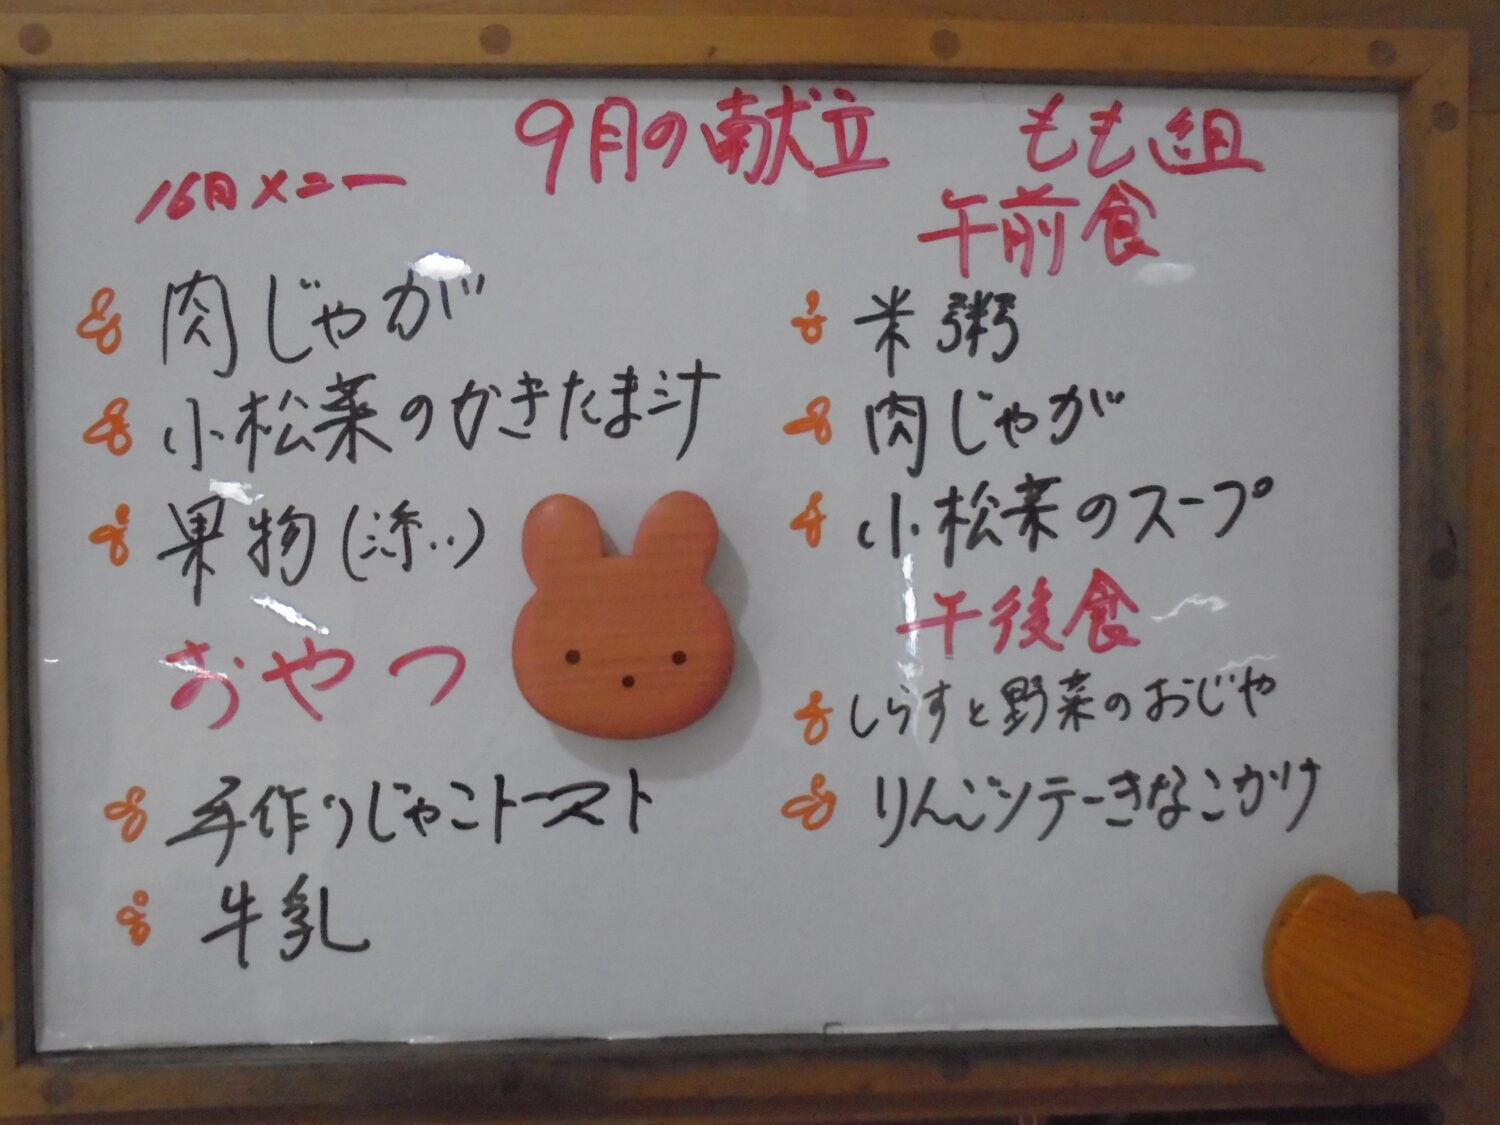 9月の献立
16日メニュー
肉じゃが
小松菜のかきたま汁
果物(添い)
おやつ
手作りじゃこトースト
牛乳
もも組
午前食
米粥
肉じゃが
小松菜のスープ
午後食
しらすと野菜のおじや
りんごソテーきなこかけ